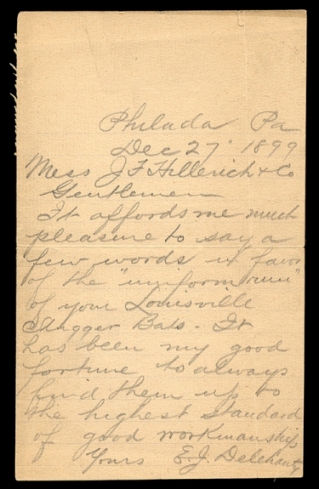 Philada Pa
Dec 27 1899
Mess J F Hillerich & Co
Gentlemen
It affords me much
pleasure to say a
few words in favor
of the "uniform run"
of your Louisville
Slugger Bats. It
has been my good
fortune to always
find them up to
the highest standard
of good workmanship,
Yours E. J. Delehanty